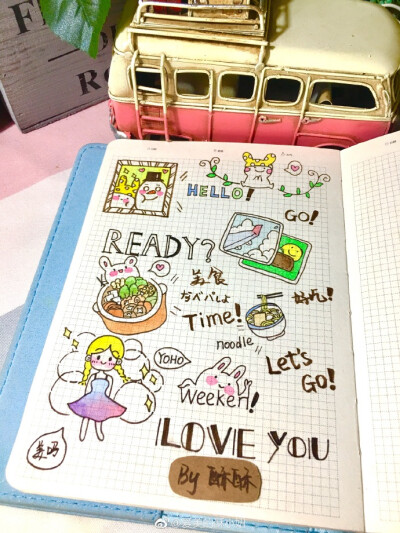 HELLO!
GO!
READY?
美食
Time!
好吃!
noodle
YOHO
Let's
GO!
Weeken!
I LOVE YOU
By 酥酥